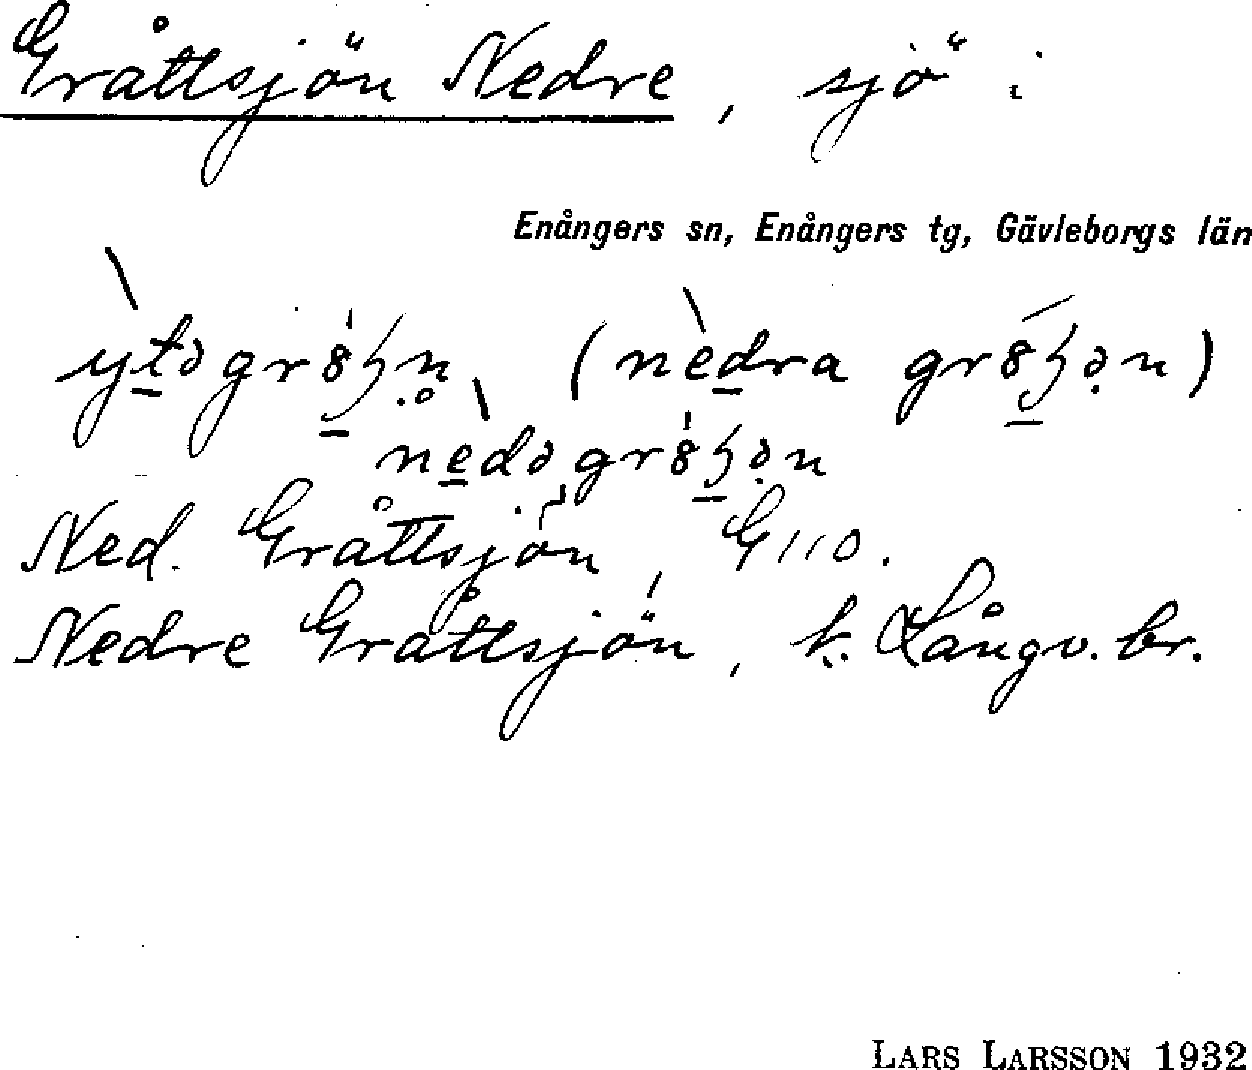 Gråttsjön Nedre, sjö i
Enångers sn, Enångers tg, Gävleborgs län
Ned. Gråttsjön, G110.
Nedre Gråttsjön, k. Långv. br.
LARS LARSSON 1932